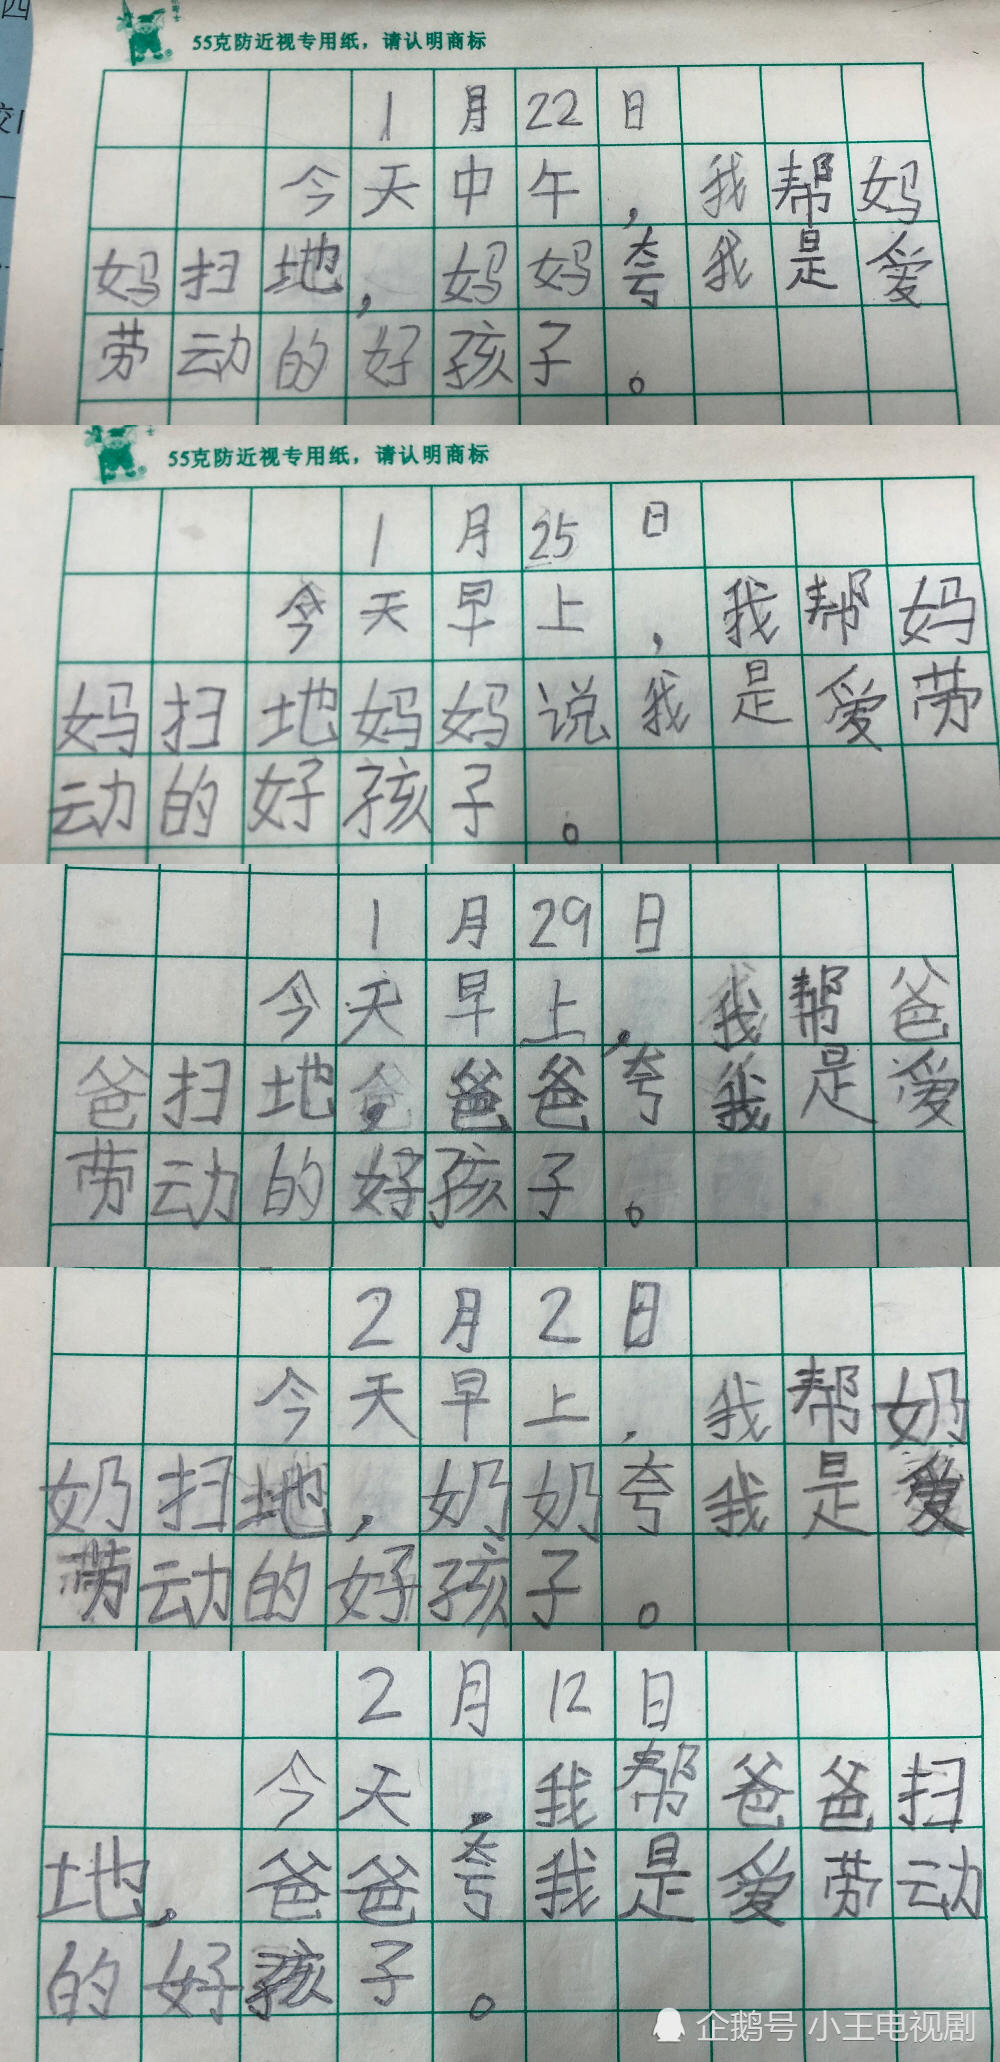 四
55克防近视专用纸，请认明商标
1月22日
今天中午，我帮妈
妈扫地，妈妈夸我是爱
劳动的好孩子。
55克防近视专用纸，请认明商标
1月25日
今天早上，我帮妈
妈扫地妈妈说我是爱劳
动的好孩子。
1月29日
今天早上，我帮爸
爸扫地，爸爸夸我是爱
劳动的好孩子。
2月2日
今天早上，我帮奶
奶扫地，奶奶夸我是爱
劳动的好孩子。
2月12日
今天，我帮爸爸扫
地，爸爸夸我是爱劳动
的好孩子。
企鹅号 小王电视剧